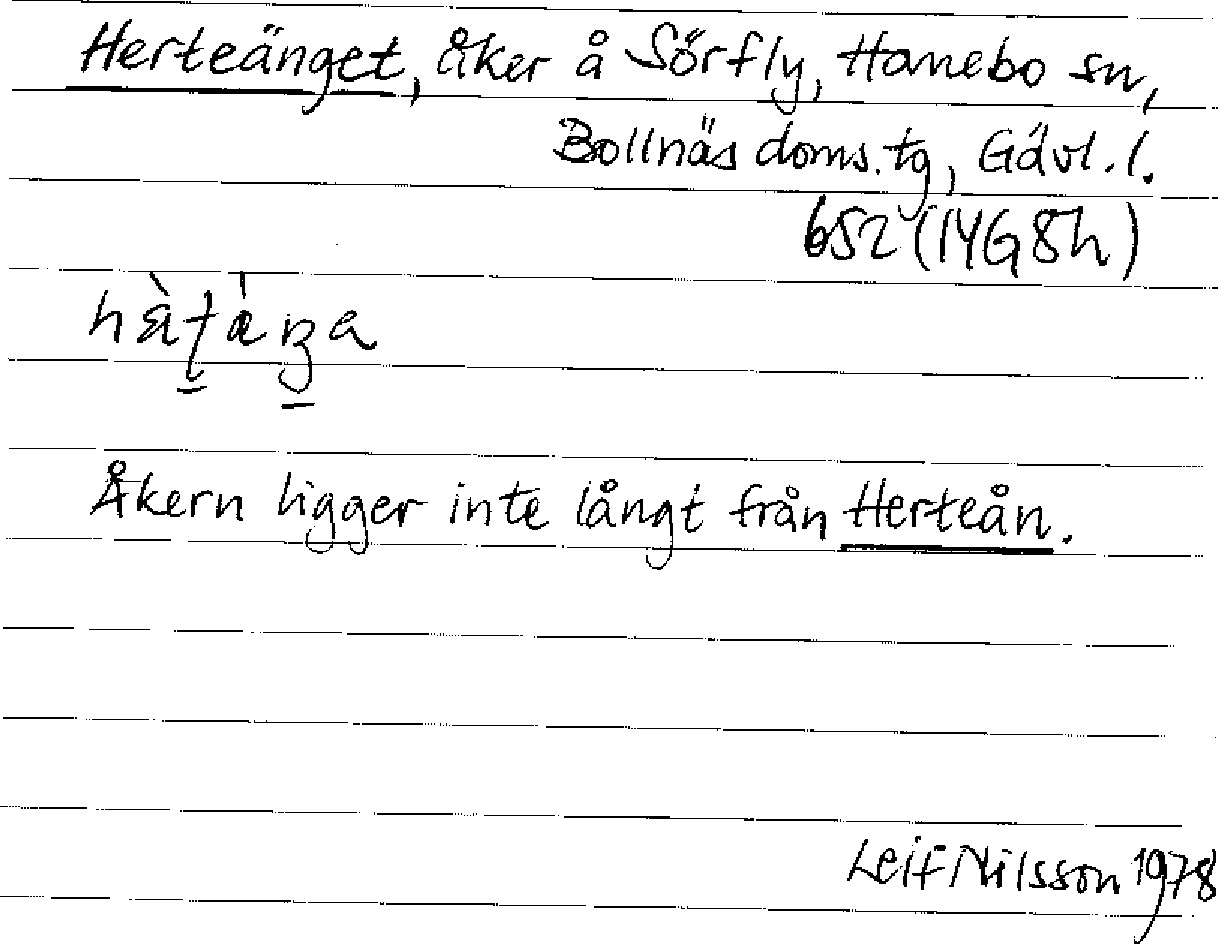 Herteänget, åker å Sörfly, Hanebo sn,
Bollnäs doms.tg, Gävl.l.
652 (14G8h)
Åkern ligger inte långt från Herteån.
Leif Nilsson 1978